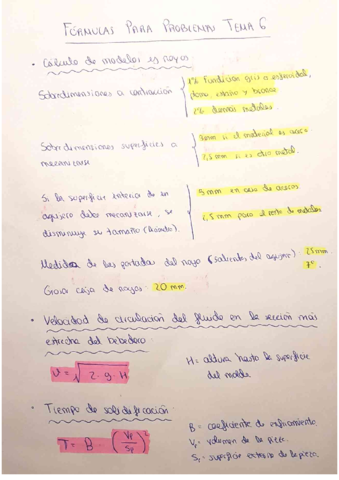 FÓRMULAS PARA PROBLEMAS TEMA 6
• Cálculo de modelos y noyos
Sobredimensiones a contracción
1% Fundición gris o esferoidal,
plomo, estaño y bronce
2% demás metales.
Sobredimensiones superficies a
mecanizar
si el material es acero
2,5 mm si es otro metal.
Si la superficie interior de un
agujero debe mecanizarse, se
disminuye su tamaño
5 mm en caso de aceros
2,5 mm para el resto de metales
Medidas de las portadas del noyo (saliente, del agujero) 25 mm
Grosor caja de noyos: 20 mm
• Velocidad de circulación del fluido en la sección más
estrecha del bebedero
v = √2.g.H
H: altura hasta la superficie
del molde
• Tiempo de solidificación
T = B · (Vp/Sp)²
B = coeficiente de enfriamiento
Vp = volumen de la pieza.
Sp = superficie exterior de la pieza.